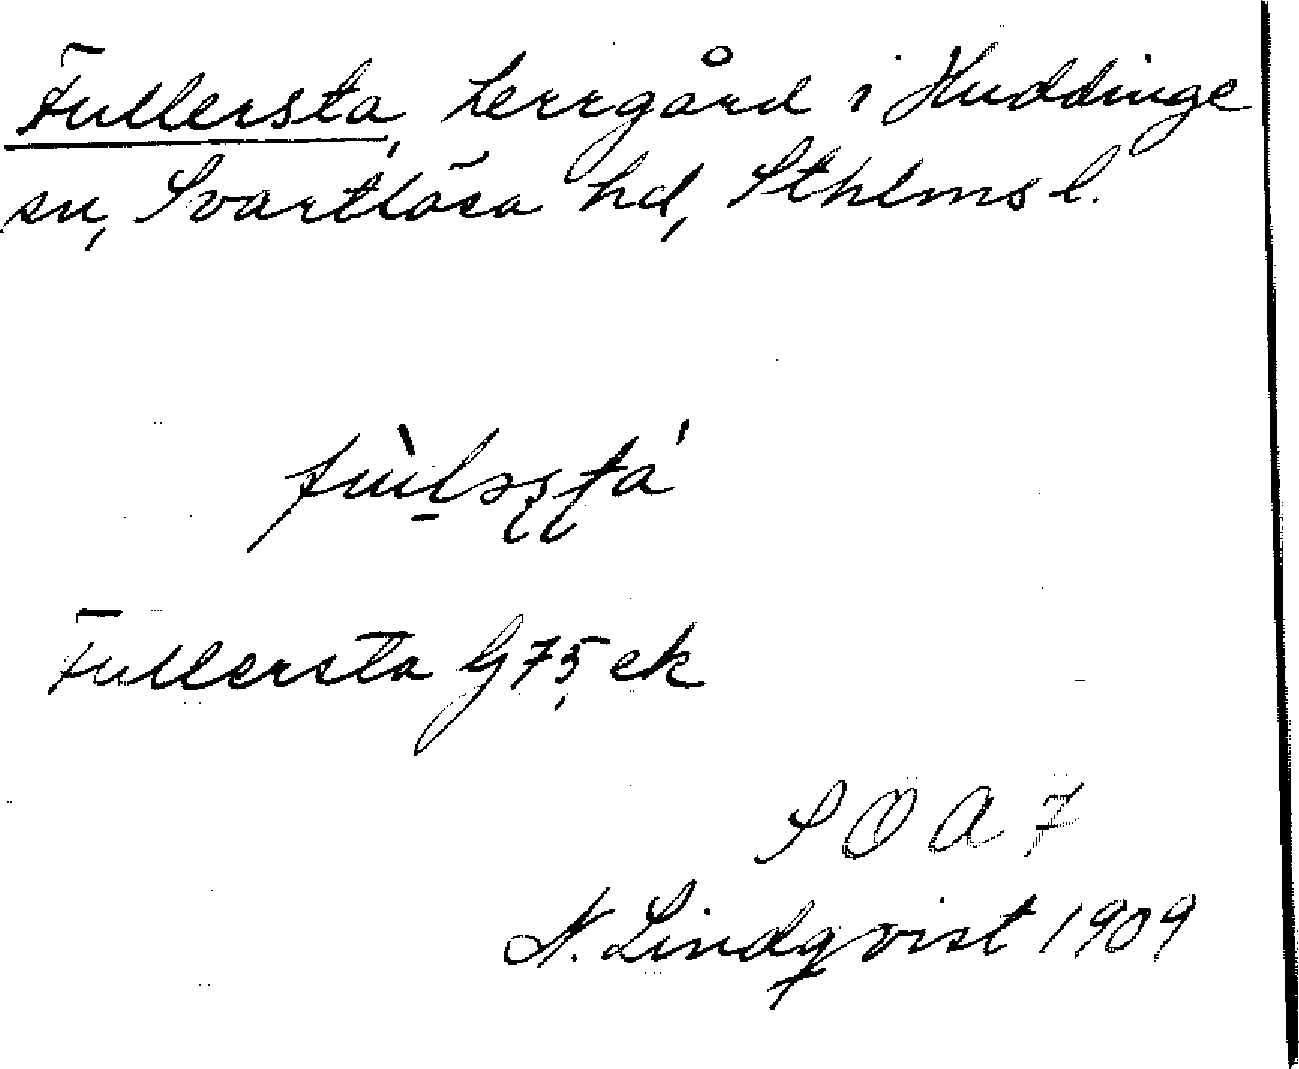 Fullersta, herrgård i Huddinge
sn, Svartlösa hd, Sthlms l.
Fullersta G 75 ek
S O A 7
N. Lindqvist 1909